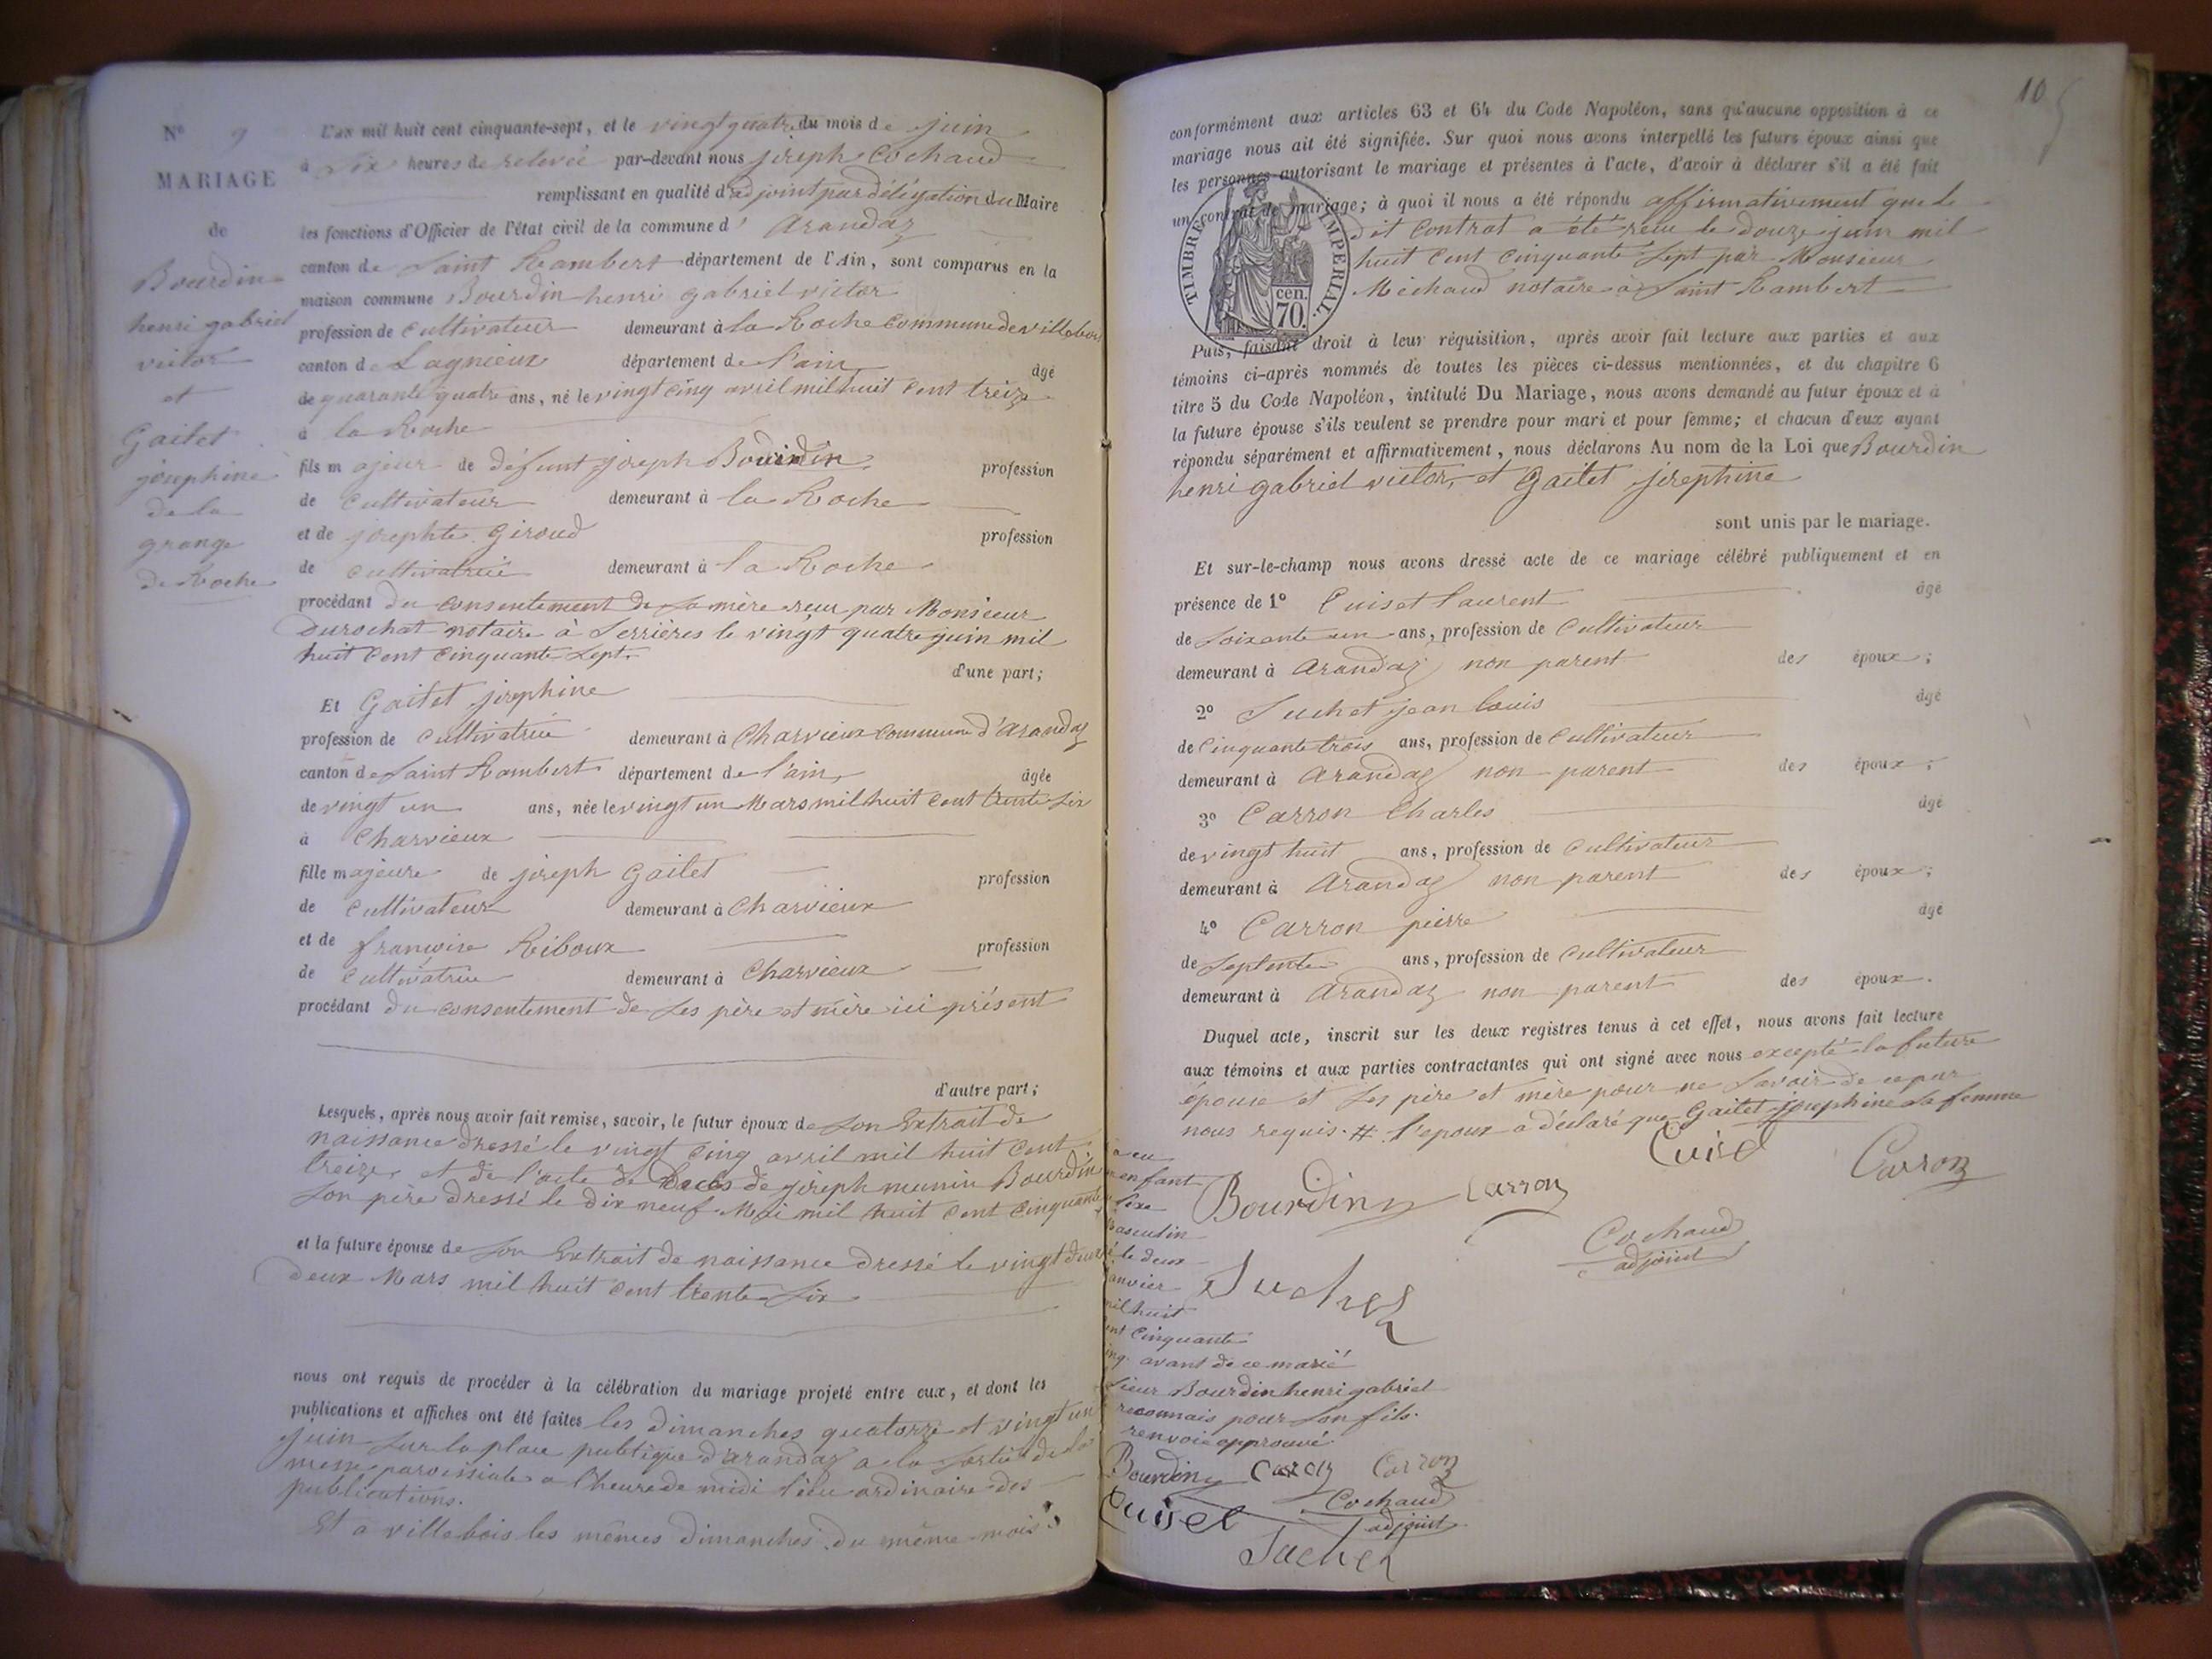 N° 9
MARIAGE
de
Bourdin
henri gabriel
victor
et
Gaitet
josephine
de la
grange
de Roche
L'an mil huit cent cinquante-sept, et le vingt quatre du mois de juin
à six heures de relevée par-devant nous joseph Cochaud
remplissant en qualité d'adjoint par délégation du Maire
les fonctions d'Officier de l'état civil de la commune d' arandaz
canton de Saint Rambert département de l'Ain, sont comparus en la
maison commune Bourdin henri gabriel victor
profession de Cultivateur demeurant à la Roche Commune de villebois
canton de Lagnieux département de l'ain âgé
de quarante quatre ans, né le vingt cinq avril mil huit cent treize
à la Roche
fils majeur de défunt joseph Bourdin profession
de Cultivateur demeurant à la Roche
et de josephte Giroud profession
de cultivatrice demeurant à la Roche
procédant du consentement de sa mère reçu par Monsieur
durochat notaire à Serrières le vingt quatre juin mil
huit cent cinquante sept.
d'une part;
Et Gaitet josephine
profession de cultivatrice demeurant à Charvieux commune d'arandaz
canton de Saint Rambert département de l'ain âgée
de vingt un ans, née le vingt un Mars mil huit cent trente six
à Charvieux
fille majeure de joseph Gaitet profession
de cultivateur demeurant à Charvieux
et de françoise Riboux profession
de cultivatrice demeurant à Charvieux
procédant du consentement de ses père et mère ici présent
d'autre part;
Lesquels, après nous avoir fait remise, savoir, le futur époux de son Extrait de
naissance dressé le vingt cinq avril mil huit cent
treize et de l'acte de Décès de joseph Bourdin
son père dressé le dix neuf Mai mil huit cent cinquante
et la future épouse de son Extrait de naissance dressé le vingt deux
deux Mars mil huit cent trente six
nous ont requis de procéder à la célébration du mariage projeté entre eux, et dont les
publications et affiches ont été faites les dimanches quatorze et vingt un
juin sur la place publique d'arandaz a la sortie de la
messe paroissiale a l'heure de midi lieu ordinaire des
publications.
Et a villebois les mêmes dimanches du même mois
10
conformément aux articles 63 et 64 du Code Napoléon, sans qu'aucune opposition à ce
mariage nous ait été signifiée. Sur quoi nous avons interpellé les futurs époux ainsi que
les personnes autorisant le mariage et présentes à l'acte, d'avoir à déclarer s'il a été fait
un contrat de mariage; à quoi il nous a été répondu affirmativement que le
dit Contrat a été reçu le douze juin mil
huit cent cinquante sept par Monsieur
Michaud notaire a Saint Rambert
TIMBRE IMPERIAL.
cen.
70.
Puis, faisant droit à leur réquisition, après avoir fait lecture aux parties et aux
témoins ci-après nommés de toutes les pièces ci-dessus mentionnées, et du chapitre 6
titre 5 du Code Napoléon, intitulé Du Mariage, nous avons demandé au futur époux et à
la future épouse s'ils veulent se prendre pour mari et pour femme; et chacun d'eux ayant
répondu séparément et affirmativement, nous déclarons Au nom de la Loi que Bourdin
henri gabriel victor, et Gaitet josephine
sont unis par le mariage.
Et sur-le-champ nous avons dressé acte de ce mariage célébré publiquement et en
présence de 1° Cuiset laurent âgé
de soixante un ans, profession de Cultivateur
demeurant à arandaz non parent des époux;
2° Suchet jean louis âgé
de cinquante trois ans, profession de Cultivateur
demeurant à arandaz non parent des époux;
3° Carron Charles âgé
de vingt huit ans, profession de Cultivateur
demeurant à arandaz non parent des époux;
4° Carron pierre âgé
de septente ans, profession de cultivateur
demeurant à arandaz non parent des époux.
Duquel acte, inscrit sur les deux registres tenus à cet effet, nous avons fait lecture
aux témoins et aux parties contractantes qui ont signé avec nous excepté la future
épouse et ses père et mère pour ne savoir de ce par
nous requis. # l'epoux a déclaré que Gaitet josephine sa femme
a eu
enfant
sexe
masculin
le deux
janvier
mil huit
cent cinquante
cinq avant de ce marié
sieur Bourdin henri gabriel
reconnais pour son fils.
renvoie approuvé
Cuisel
Carron
Bourdin Carron
Cochaud
adjoint
Suchet
Bourdin Caron Carron
Cochaud
adjoint
Cuisel
Suchet